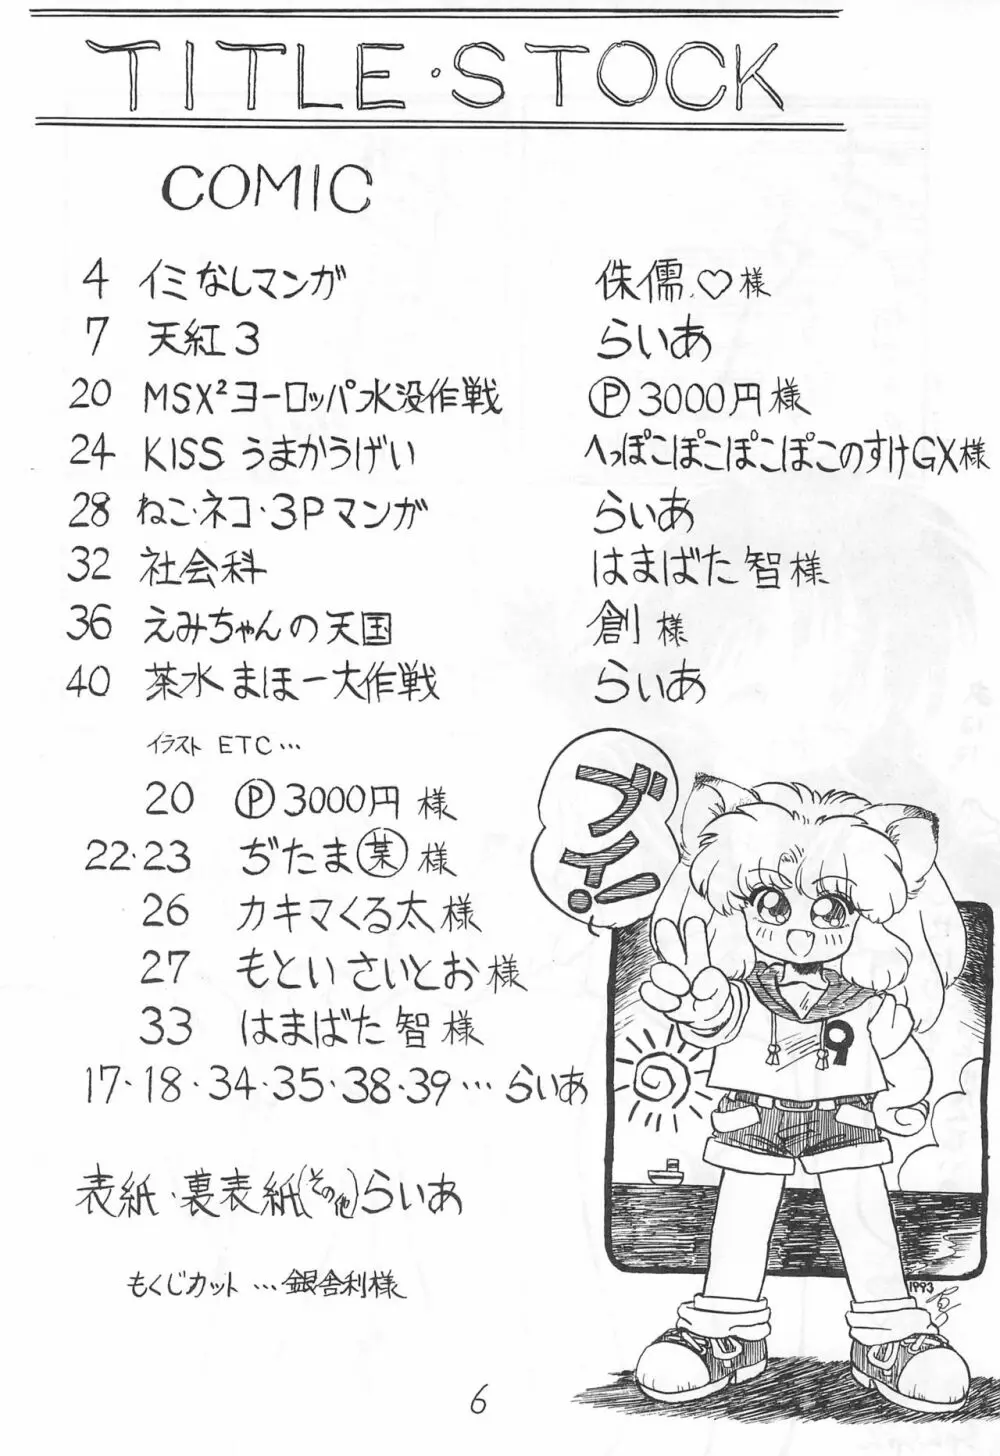 TITLE・STOCK
COMIC
4 イミなしマンガ 侏儒.♡様
7 天紅3 らいあ
20 MSX²ヨーロッパ水没作戦 Ⓟ3000円様
24 KISS うまかうげい へっぽこぽこぽこぽこのすけGX様
28 ねこ・ネコ・3Pマンガ らいあ
32 社会科 はまばた智様
36 えみちゃんの天国 創様
40 茶水まほー大作戦 らいあ
イラスト ETC…
20 Ⓟ3000円様
22・23 ぢたま(某)様
26 カキマくる太様
27 もといさいとお様
33 はまばた智様
17・18・34・35・38・39… らいあ
表紙・裏表紙(その他)らいあ
もくじカット …銀舎利様
ブイ!
9
1993
6